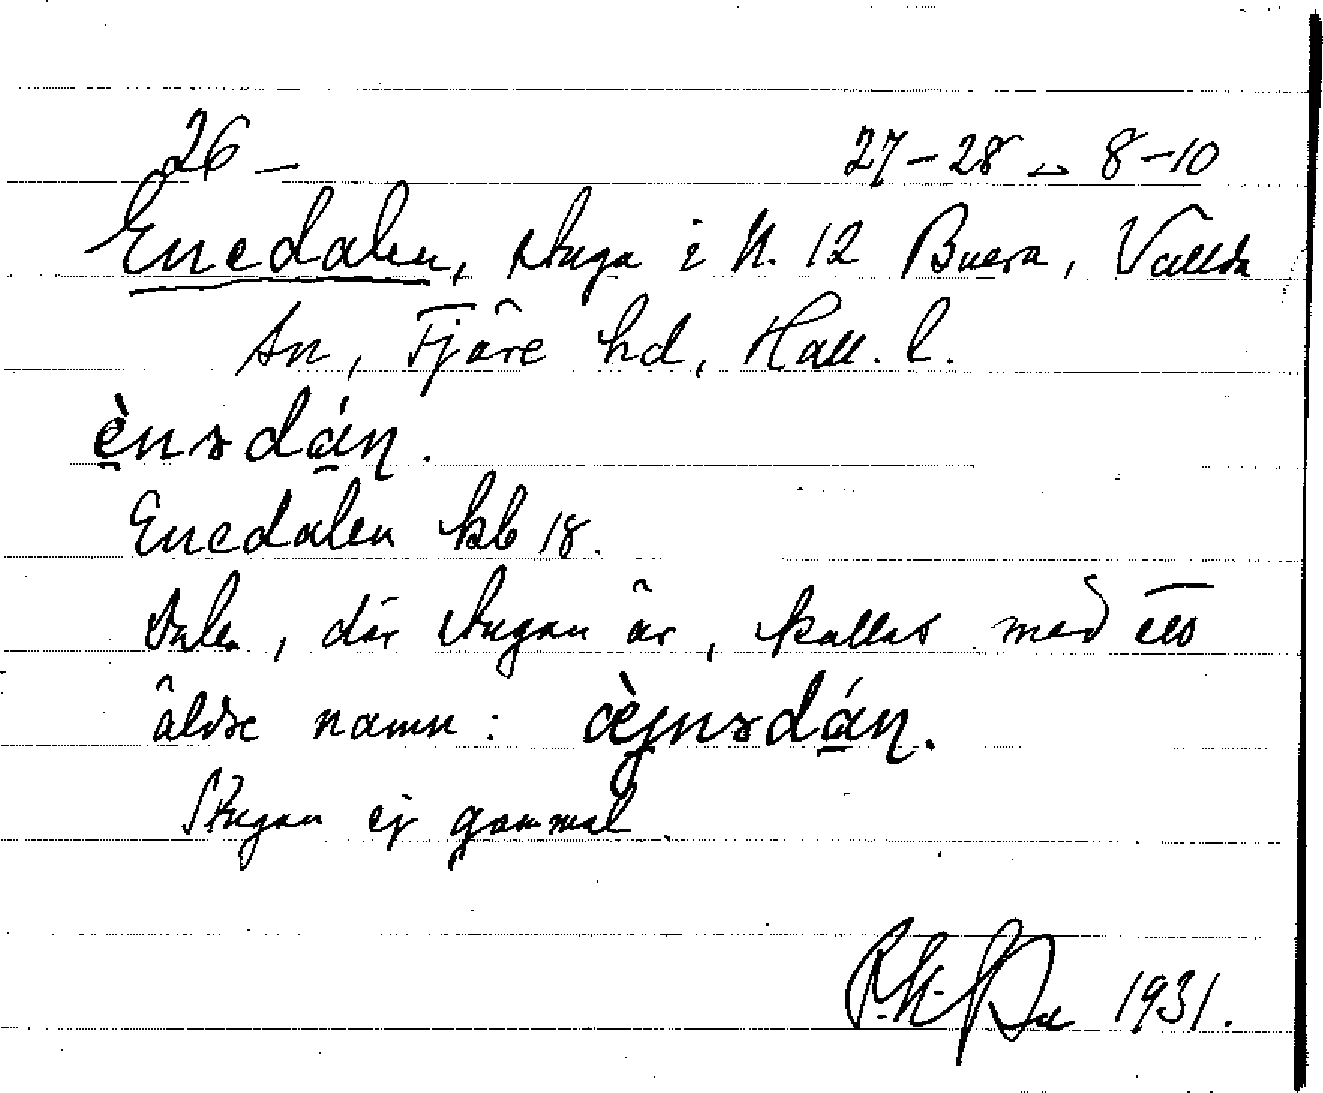 26 – 27–28 8–10
Enedalen, stuga i N. 12 Buera, Vallda
sn, Fjäre hd, Hall. l.
ènɘdán.
Enedalen kb 18.
Dalen, där stugan är, kallas med ett
äldre namn: æ̀jnɘdán.
Stugan ej gammal.
1931.